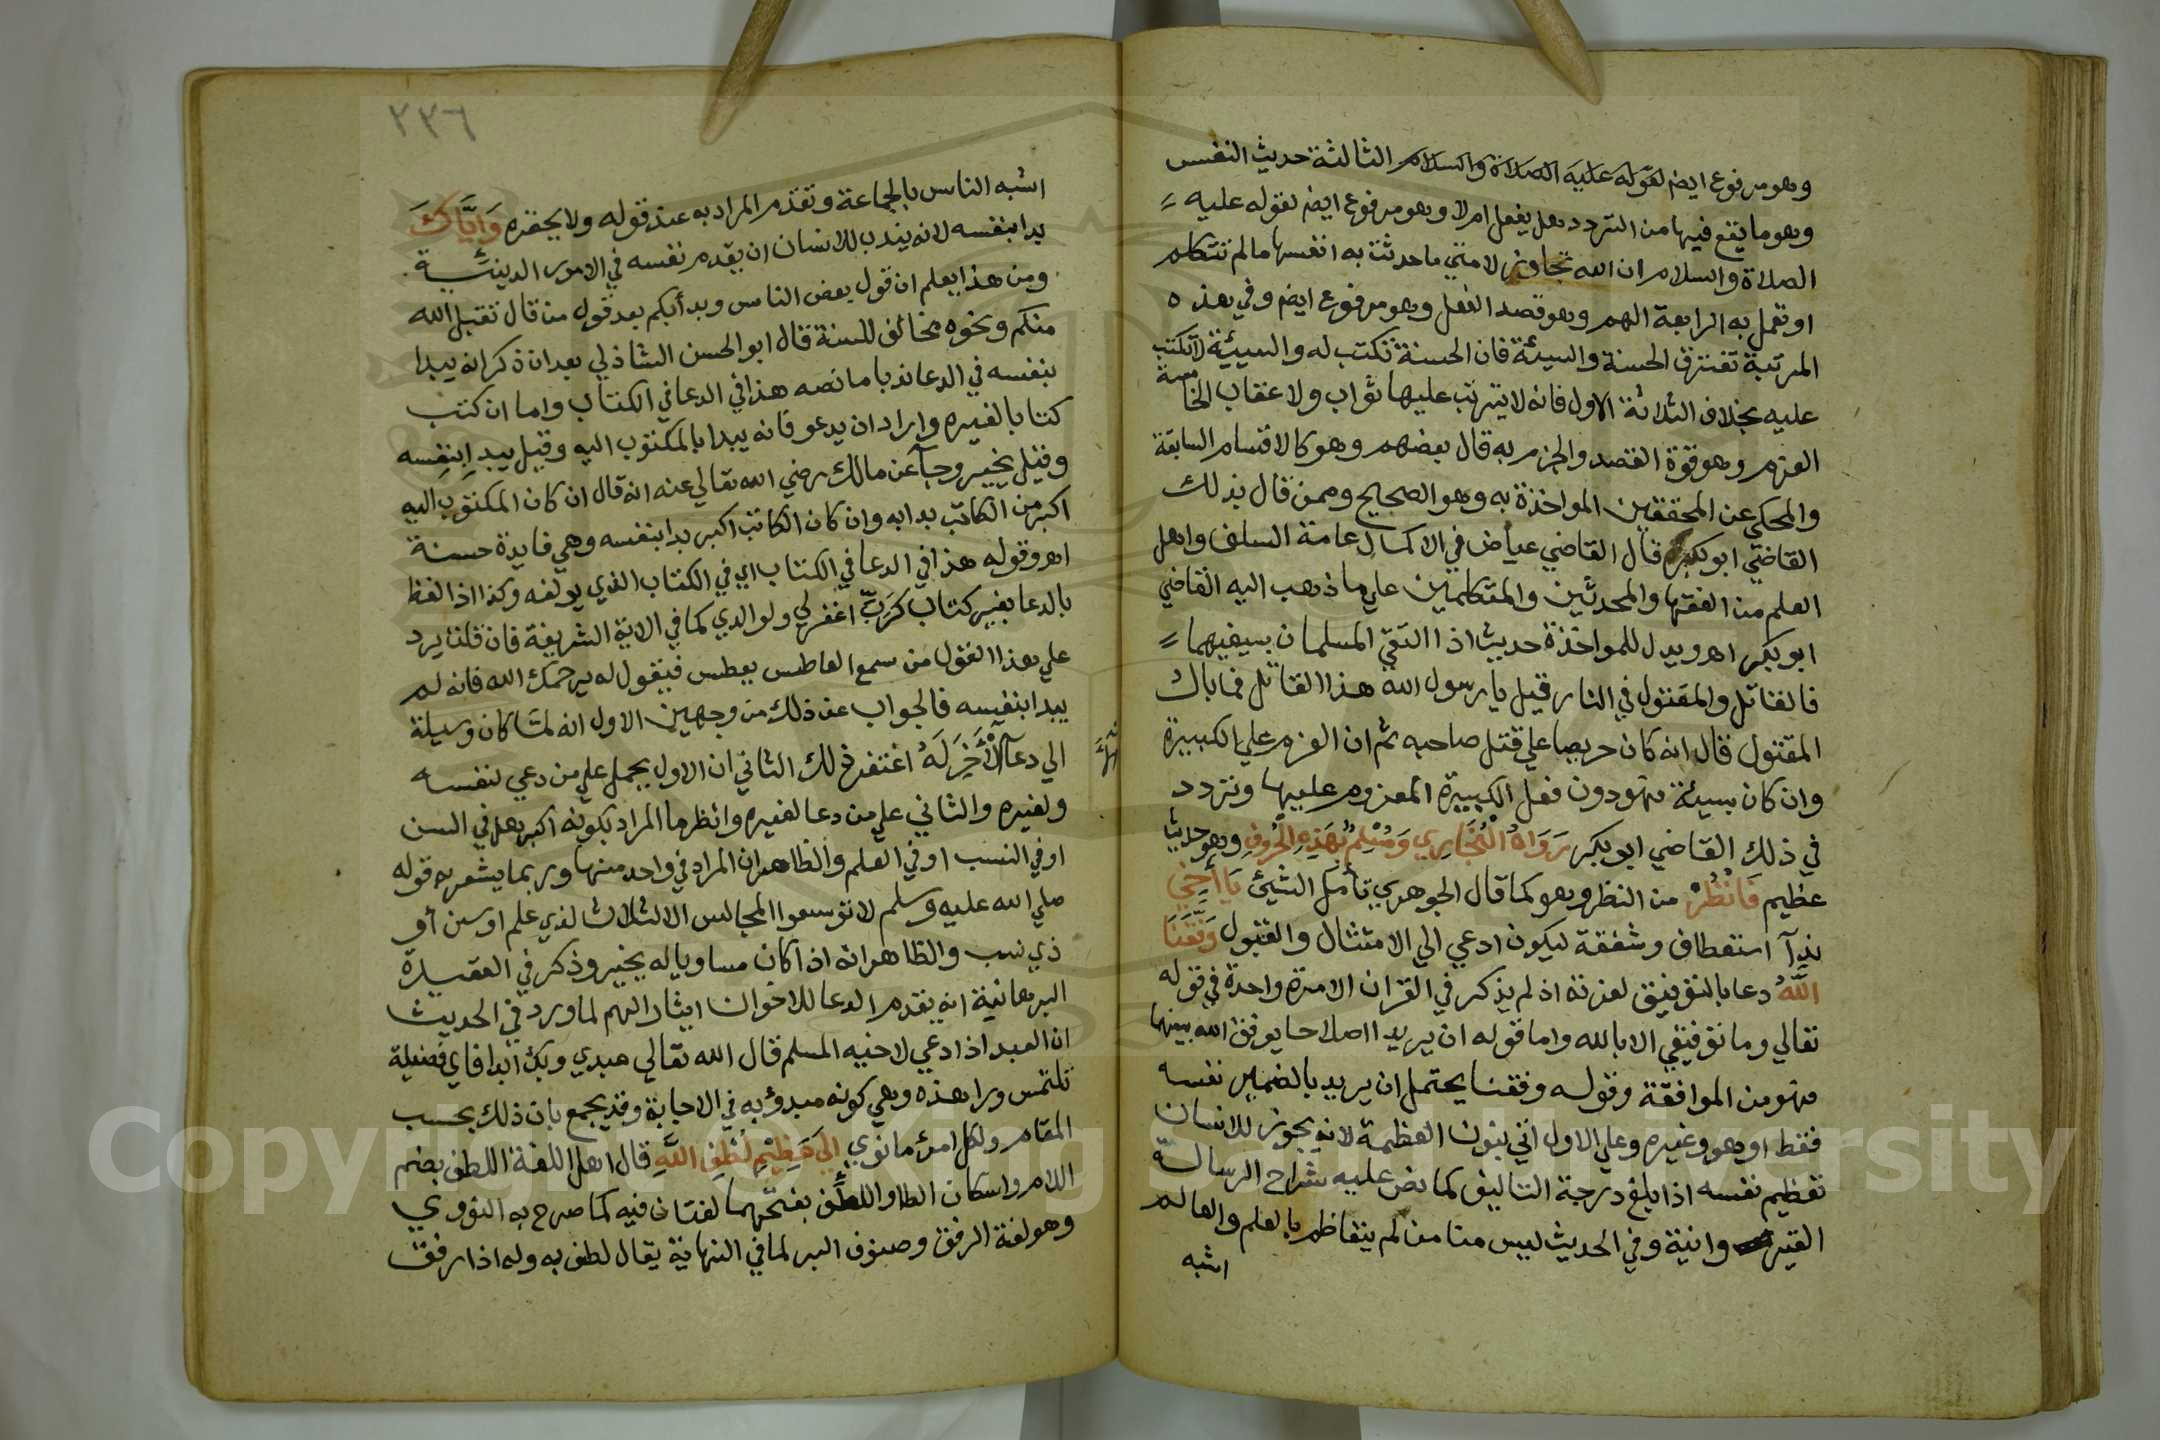 وهو مرفوع ايض لقوله عليه الصلاة والسلام الثالثة حديث النفس
وهو ما يقع فيها من التردد هل يفعل ام لا وهو مرفوع ايض لقوله عليه
الصلاة والسلام ان الله تجاوز لامتي ما حدثت به انفسها ما لم تتكلم
او تعمل به الرابعة الهم وهو قصد الفعل وهو مرفوع ايض وفي هذه
المرتبة تفترق الحسنة والسيئة فان الحسنة تكتب له والسيئة لا تكتب
عليه بخلاف الثلاثة الاول فانه لا يترتب عليها ثواب ولا عقاب الخامسة
العزم وهو قوة القصد والجزم به قال بعضهم وهو كالاقسام السابقة
والمحكي عن المحققين المواخذة به وهو الصحيح وممن قال بذلك
القاضي ابو بكر قال القاضي عياض في الاكمال عامة السلف واهل
العلم من الفقها والمحدثين والمتكلمين علي ما ذهب اليه القاضي
ابو بكر اهـ ويدل للمواخذة حديث اذا التقي المسلمان بسيفيهما
فالقاتل والمقتول في النار قيل يا رسول الله هذا القاتل فما بال
المقتول قال انه كان حريصا علي قتل صاحبه ثم ان العزم علي الكبيرة
وان كان سيئة فهو دون فعل الكبيرة المعزوم عليها وتردد
في ذلك القاضي ابو بكر رَوَاهُ الْبُخَارِي وَمُسْلِمٌ بِهَذِهِ الْحُرُوفِ وهو حديث
عظيم فَانْظُرْ من النظر وهو كما قال الجوهري تأمل الشيئ يَا أَخِي
ندآ استعطاف وشفقة ليكون ادعي الي الامتثال والقبول وَفَّقَنَا
اللَّهُ دعا بالتوفيق لعزته اذ لم يذكر في القران الا مرة واحدة في قوله
تعالي وما توفيقي الا بالله واما قوله ان يريدا اصلاحا يوفق الله بينهما
فهو من الموافقة وقوله وفقنا يحتمل ان يريد بالضمير نفسه
فقط او هو وغيره وعلي الاول اتي بنون العظمة لانه يجوز للانسان
تعظيم نفسه اذا بلغ درجة التاليف كما نص عليه شراح الرسالة
القيروانية وفي الحديث ليس منا من لم يتعاظم بالعلم والعالم
اشبه
٢٣٦
اشبه الناس بالجماعة وتقدم المراد به عند قوله ولا يحقره وَاِيَّاكَ
بدا بنفسه لانه يندب للانسان ان يقدم نفسه في الامور الدينية
ومن هذا يعلم ان قول بعض الناس وبدأ بكم بعد قول من قال تقبل الله
منكم ونحوه مخالف للسنة قال ابو الحسن الشاذلي بعد ان ذكر انه يبدا
بنفسه في الدعا ندبا ما نصه هذا في الدعا في الكتاب واما ان كتب
كتابا لغيره واراد ان يدعو فانه يبدا بالمكتوب اليه وقيل يبدا بنفسه
وقيل يخير وجآ عن مالك رضي الله تعالي عنه انه قال ان كان المكتوب اليه
اكبر من الكاتب بدا به وان كان الكاتب اكبر بدا بنفسه وهي فايدة حسنة
اهـ وقوله هذا في الدعا في الكتاب اي في الكتاب الذي يولفه وكذا اذا لفظ
بالدعا بغير كتاب كَرَبِّ اغفر لي ولوالدي كما في الاية الشريفة فان قلت يرد
علي هذا القول من سمع العاطس يعطس فيقول له يرحمك الله فانه لم
يبدا بنفسه فالجواب عن ذلك من وجهين الاول انه لما كان وسيلة
الي دعآ الْأَخَرِ لَهُ اغتفر ذلك الثاني ان الاول يحمل علي من دعي لنفسه
ولغيره والثاني علي من دعا لغيره وانظر ما المراد بكونه اكبر هل في السن
او في النسب او في العلم والظاهر ان المراد في واحد منها وربما يشعر به قوله
صلي الله عليه وسلم لا توسعوا المجالس الا لثلاث لذي علم او سن أو
ذي نسب والظاهر انه اذا كان مساويا له يخير وذكر في العقيدة
البرهانية انه يقدم الدعا للاخوان ايثارا لهم لما ورد في الحديث
ان العبد اذا دعي لاخيه المسلم قال الله تعالي عبدي وبك ابدا فاي فضيلة
تلتمس ورا هذه وهي كونه مبدؤ به في الاجابة وقد يجمع بان ذلك بحسب
المقام ولكل امرئ ما نوي اِلَى عَظِيْمِ لُطْفِ اللَّهِ قال اهل اللغة اللطف بضم
اللام واسكان الطا واللطف بفتحهما لغتان فيه كما صرح به النووي
وهو لغة الرفق وصنوف البر لما في النهاية يقال لطف به وله اذا رفق
Copyright © King Saud University